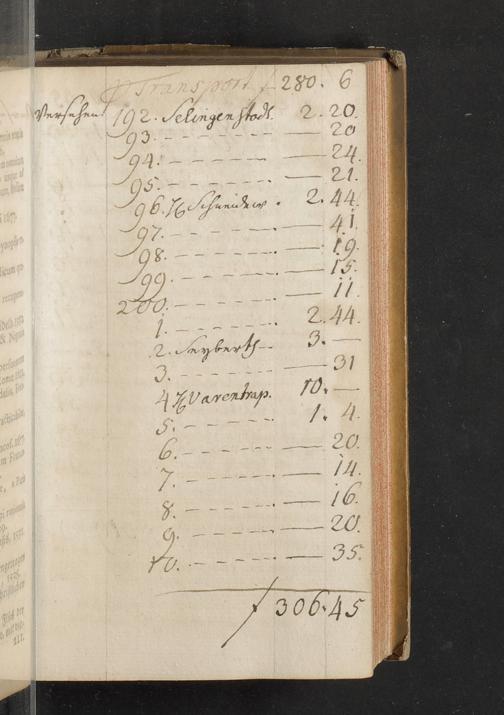 Transport f 280. 6
Versehen 192. Selingenstadt. 2. 20.
93. — 20
94. — 24.
95. — 21.
96. Schneider. 2. 44.
97. — 41.
98. — 19.
99. — 15.
200. — 11.
1. 2. 44.
2. Seyberth 3. —
3. — 31
4. Varentrap. 10. —
5. 1. 4.
6. — 20.
7. — 14.
8. — 16.
9. — 20.
10. — 35.
f 306. 45